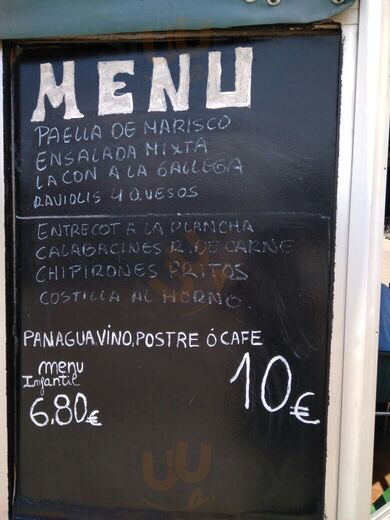 MENU
PAELLA DE MARISCO
ENSALADA MIXTA
LACON A LA GALLEGA
RAVIOLIS 4 QUESOS
ENTRECOT A LA PLANCHA
CALABACINES R. DE CARNE
CHIPIRONES FRITOS
COSTILLA AL HORNO.
PAN AGUA.VINO, POSTRE Ó CAFE
menu
Infantil
6,80€
10€